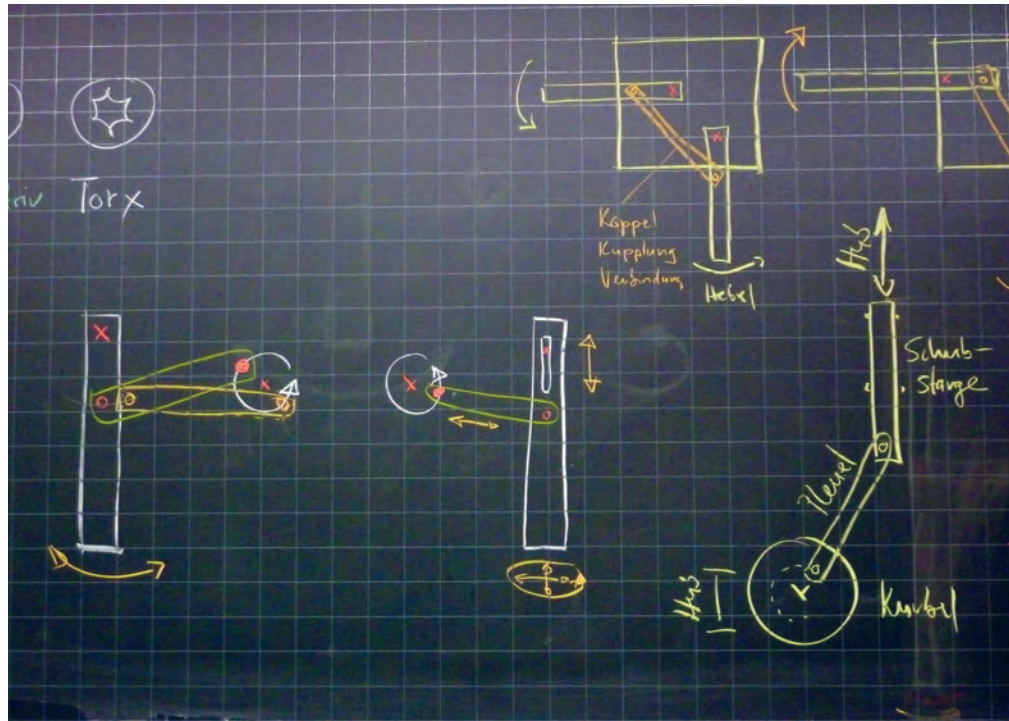 riv
Torx
Koppel
Kupplung
Verbindung
Hebel
Hub
Schub-
stange
Pleuel
Hub
Kurbel